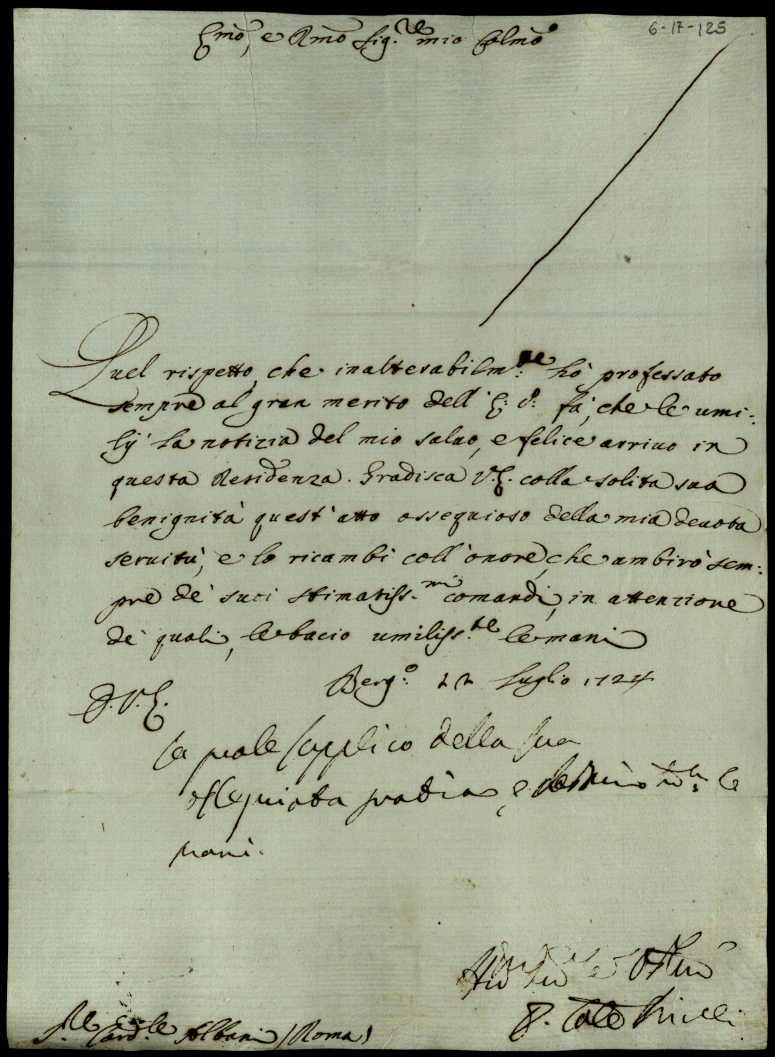 6-17-125
Emo, e Rmo Sig.re mio Colmo
Quel rispetto, che inalterabilm:te hò professato
sempre al gran merito dell' E: V: fà, che le umi:
lÿ la notizia del mio salvo, e felice arrivo in
questa Residenza. Gradisca V.E. colla solita sua
benignità quest' atto ossequioso della mia devota
servitù, e lo ricambi coll' onore, che ambirò sem:
pre de' suoi stimatiss.mi comandi, in attenzione
de' quali, le bacio umiliss.te le mani
Berg.o 22 Luglio 1724
D.V.E.
la quale supplico della sua
ossequiata gratia, e le le
mani.
S.re Card.le Albani (Roma)